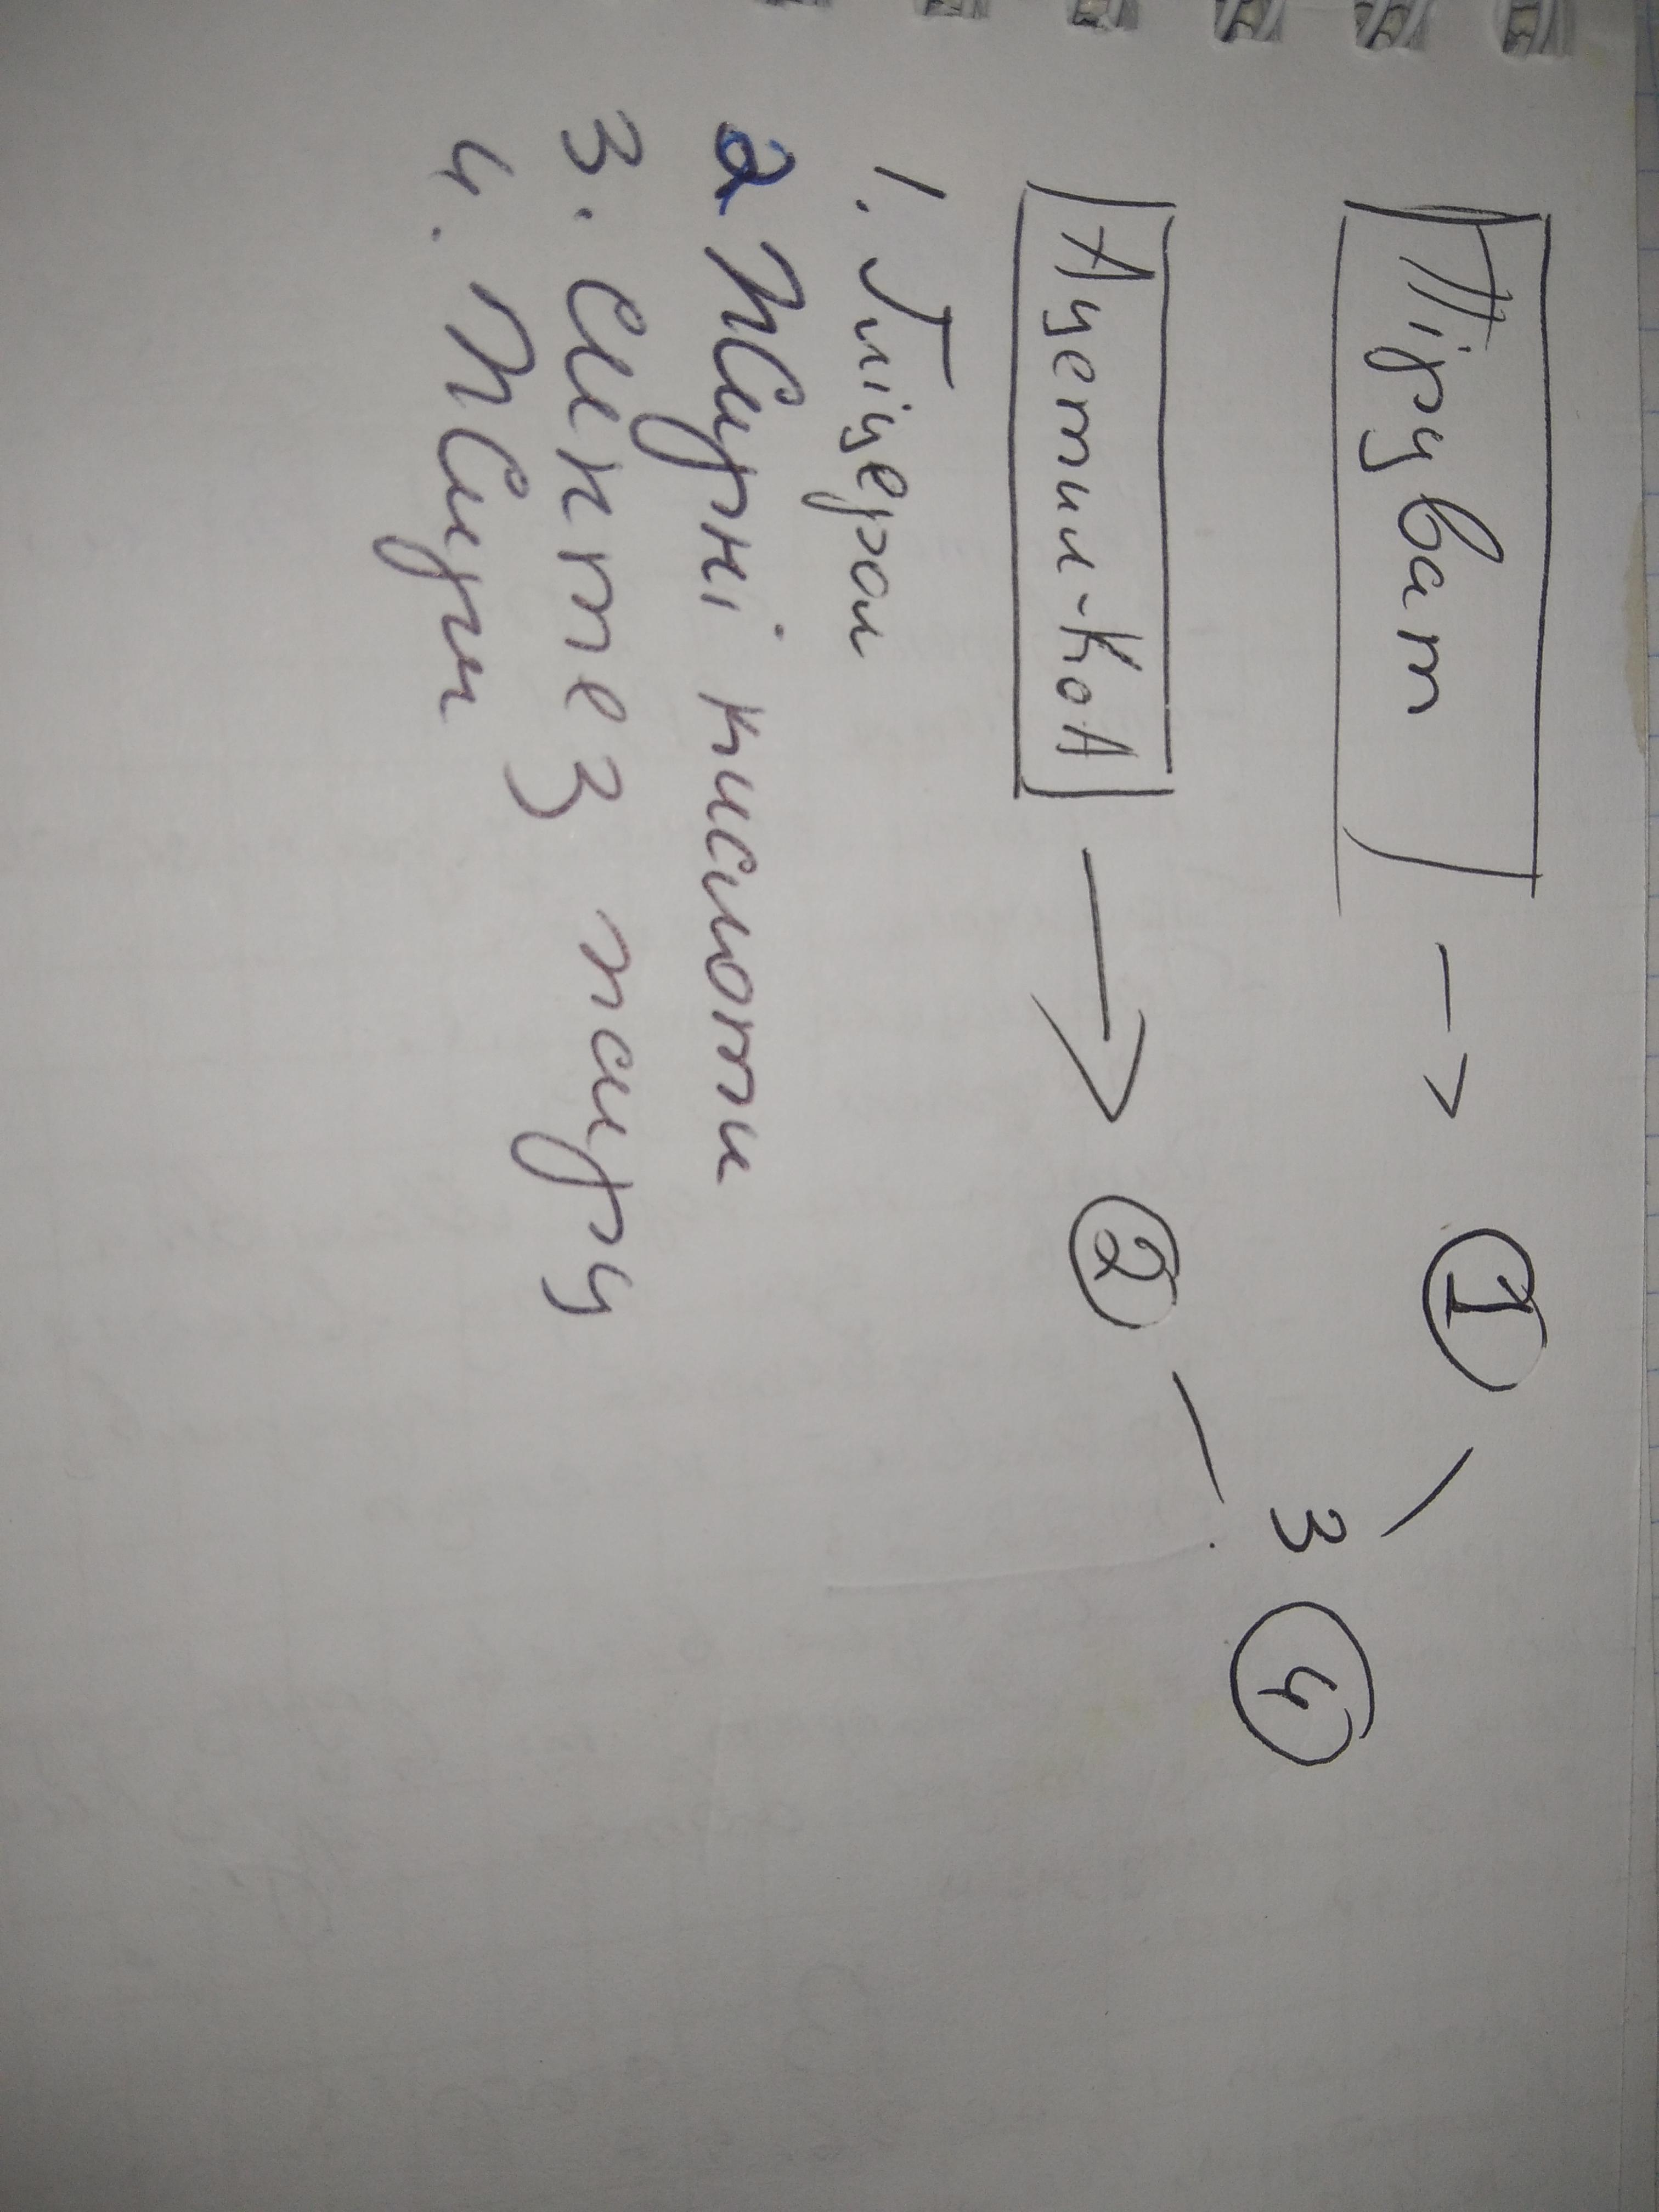 Піруват → 1
3 4
Ацетил-КоА → 2
1. Гліцерол
2 Жирні кислоти
3. Синтез жиру
4. Жири